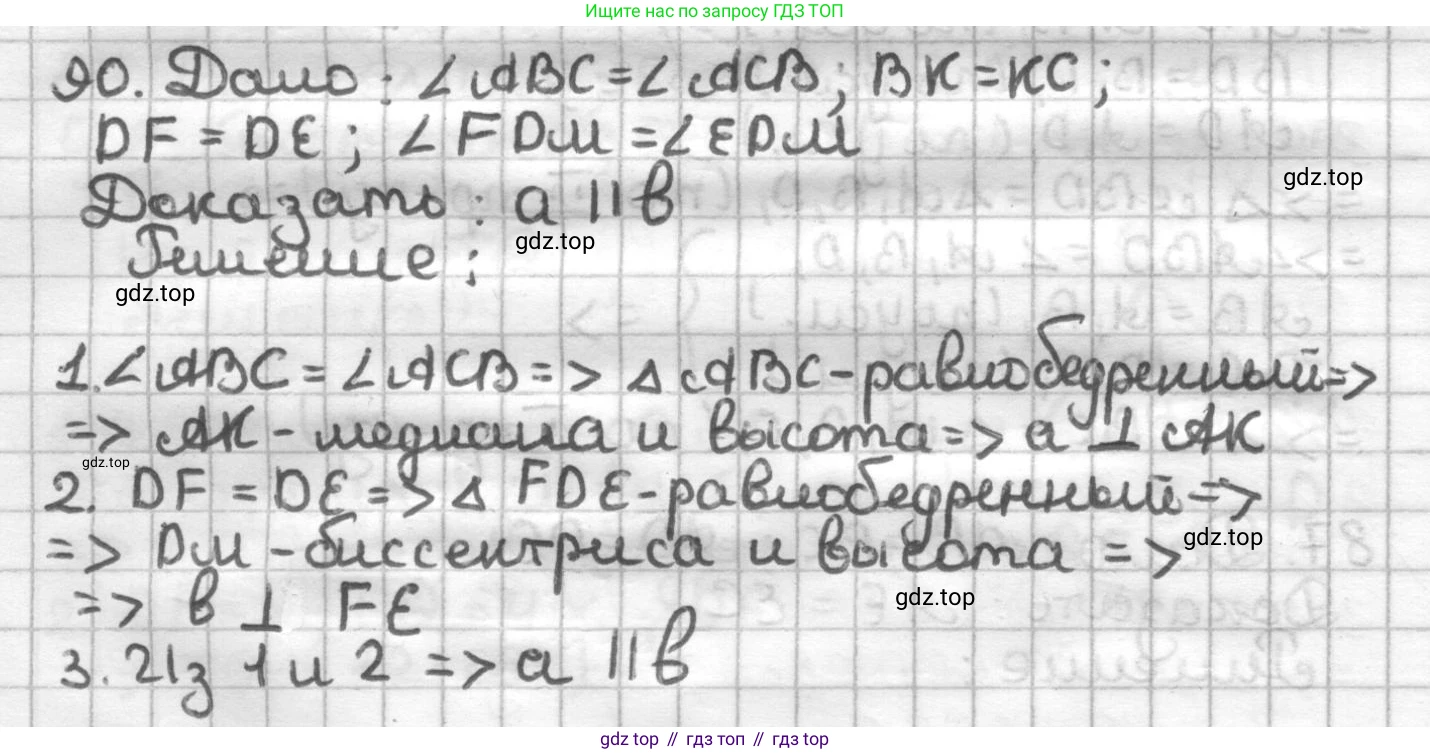 Ищите нас по запросу ГДЗ ТОП
90. Дано: ∠ABC=∠ACB; BK=KC;
DF=DE; ∠FDM=∠EDM
gdz.top
Доказать: a || b
gdz.top
Решение:
gdz.top
1. ∠ABC=∠ACB=> △ABC-равнобедренный=>
=> AK-медиана и высота=> a ⊥ AK
gdz.top
2. DF=DE=> △ FDE-равнобедренный=>
=> DM-биссектриса и высота =>
gdz.top
=> b ⊥ FE
gdz.top
3. Из 1 и 2 => a || b
gdz top // гдз топ // gdz top